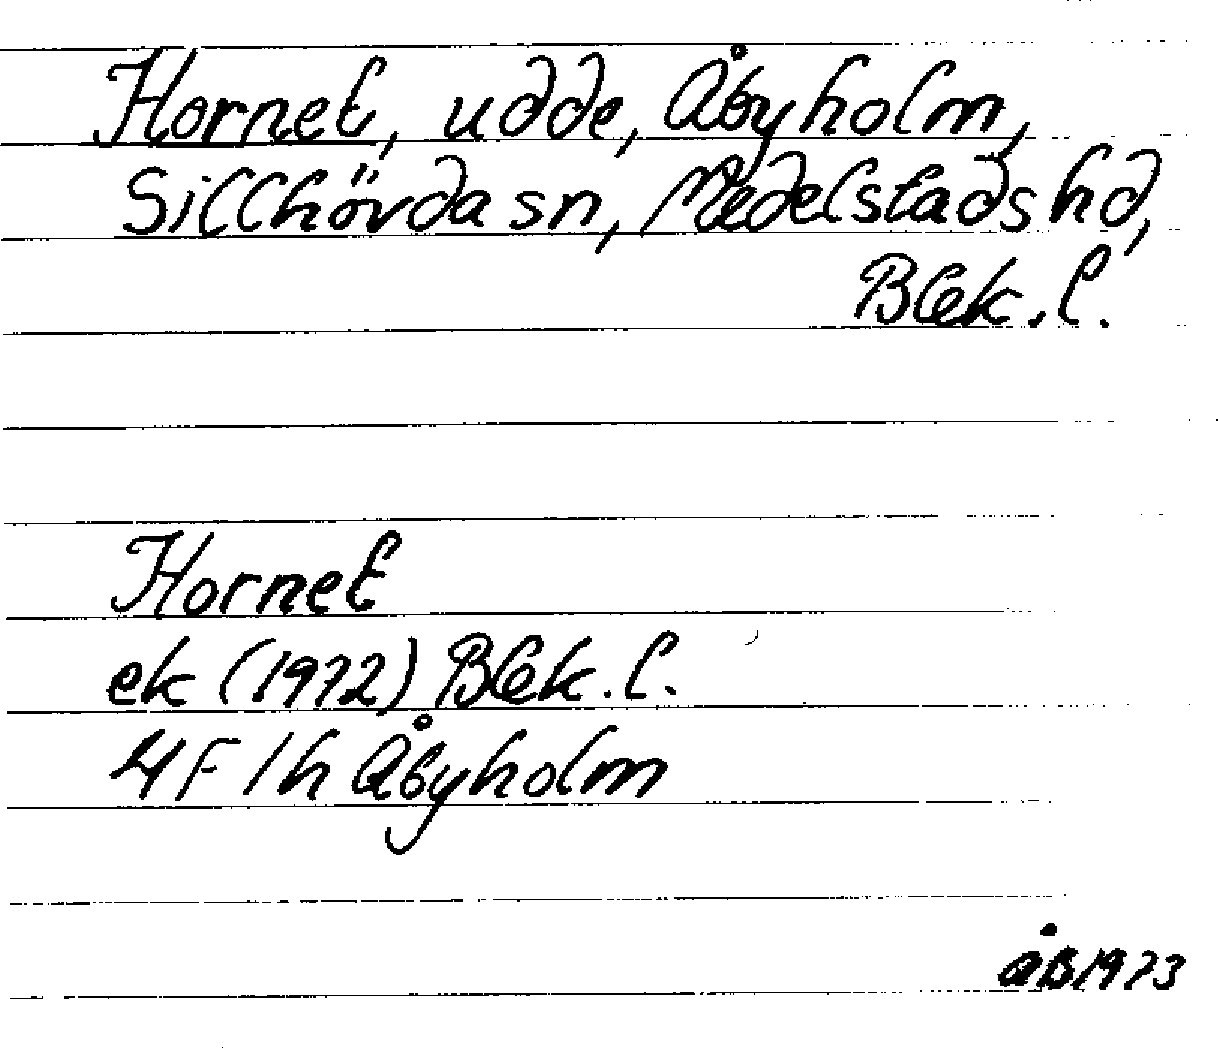 Hornet, udde, Åbyholm,
Sillhövda sn, Medelstads hd,
Blek. l.
Hornet
ek (1972) Blek. l.
4F 1h Åbyholm
åB 1973